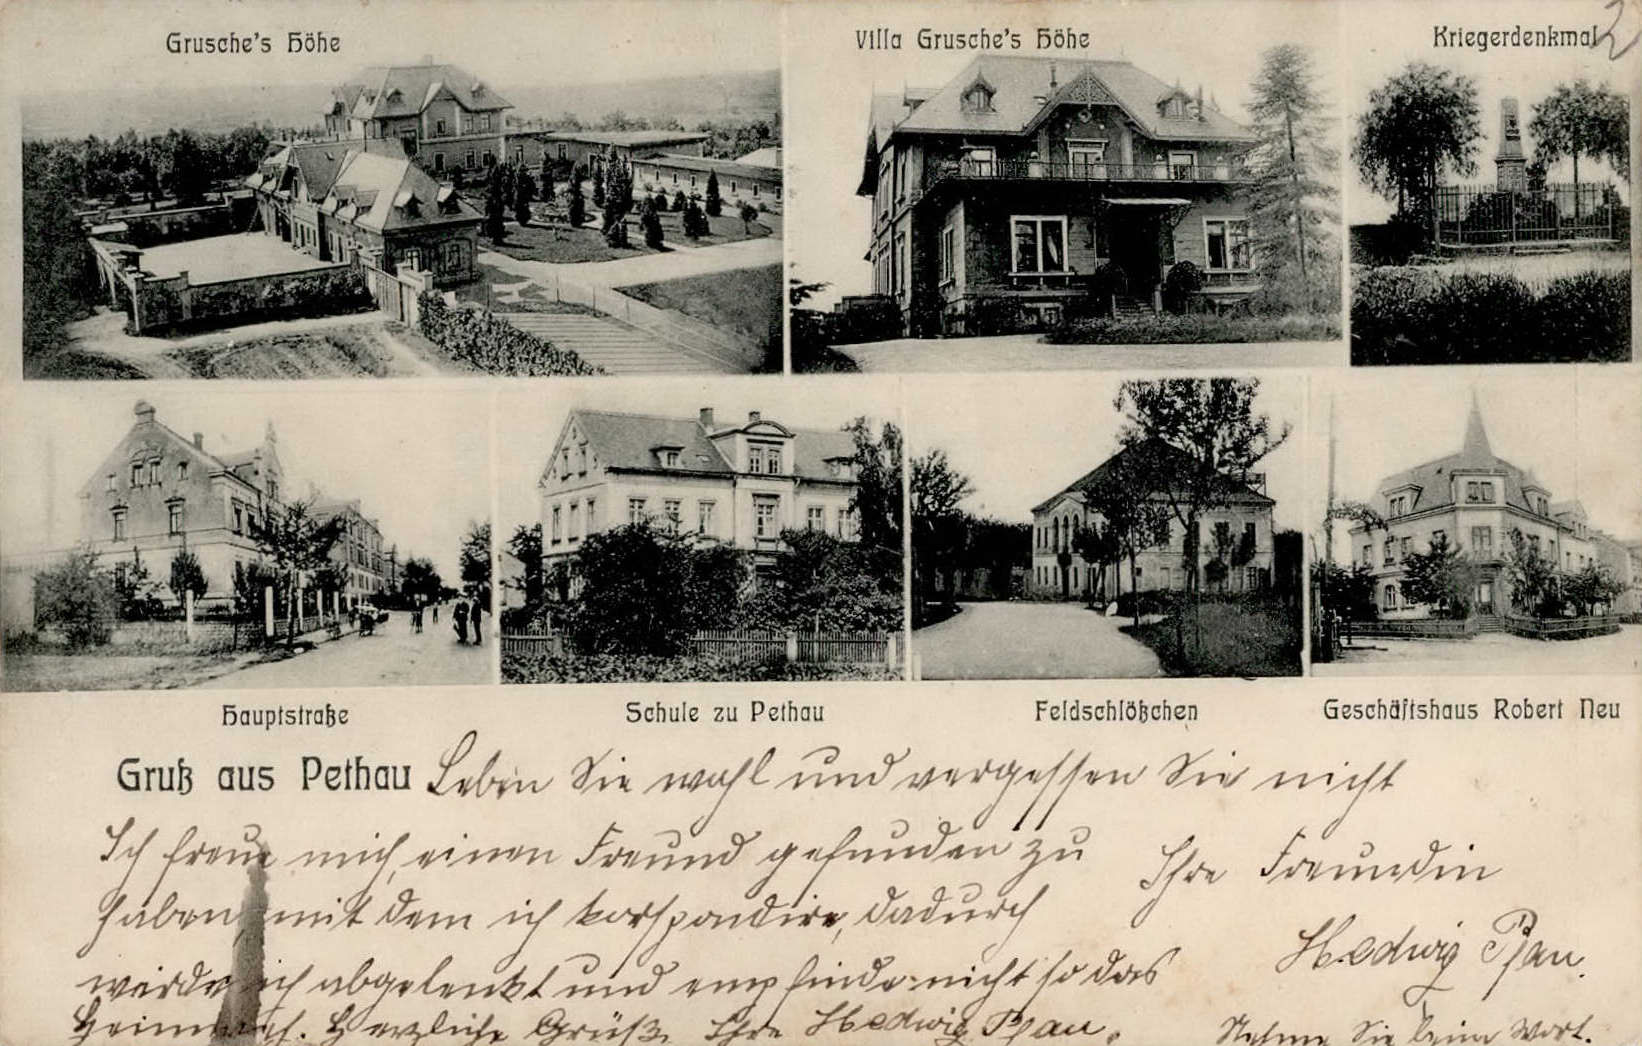 Grusche's Höhe
Villa Grusche's Höhe
Kriegerdenkmal
2
Hauptstraße
Schule zu Pethau
Feldschlößchen
Geschäftshaus Robert Neu
Gruß aus Pethau
Leben Sie wohl und vergessen Sie nicht
Ihre Freundin
Hedwig Pfau.
Ich freue mich, einen Freund gefunden zu
haben, mit dem ich korspondire, dadurch
werde ich abgelenkt und empfinde nicht so das
Heimweh. Herzliche Grüße Ihre Hedwig Pfau.
Nehmen Sie beim Wort.